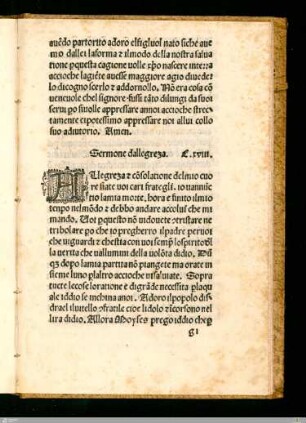 auẽdo partorito adoro elfigliuol nato siche aue
mo dallei la forma z ilmodo della nostra salua
tione pquesta cagione volle xp̃o nascere interra
accioche lagiẽte auesse maggiore agio diuede
lo dicogno scerlo z addornollo. Nõ era cosa cõ
ueneuole chel signore fussi tãto dilungi da suoi
serui po si volle appressare annoi accioche strec
tamente cipotessimo appressare noi allui collo
suo adiutorio. Amen.
Sermone dallegreza. C. xviii.
Allegreza z cõsolatione delmio cuo
re siate voi cari frategli. io nannisc
rio la mia morte, hora e finito ilmio
tempo nelmõdo z debbo andare accolui che mi
mando. Uoi pquesto nõ vidouete cõtristare ne
tribolare po che io pregherro ilpadre peruoi
che uiguardi z che stia con uoi semp̃ lospirito d̃l
la verita che uallumini della volõta didio. Dũ
q̃z dopo lamia partita nõ piangete ma orate in
sieme luno plaltro accioche vi salviate. Sopra
tuete lecose loratione e digrãde necessita plaq̃
ale iddio se inchina anoi. Adoro ilpopolo disi
drael iluitello cõflatile cioe lidolo z icorsono nel
lira didio. Allora Moyses prego iddio chep
g i